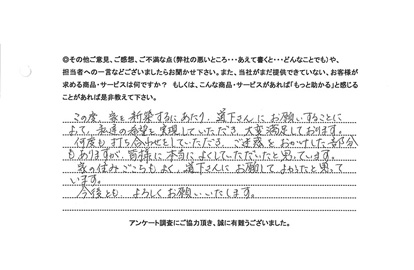 ◎その他ご意見、ご感想、ご不満な点(弊社の悪いところ・・・あえて書くと・・・どんなことでも)や、
担当者への一言などございましたらお聞かせ下さい。また、当社がまだ提供できていない、お客様が
求める商品・サービスは何ですか？ もしくは、こんな商品・サービスがあれば「もっと助かる」と感じる
ことがあれば是非教えて下さい。
この度、家を新築するにあたり、道下さんにお願いすることに
よって、私達の希望を実現していただき大変満足しております。
何度も打ち合わせをしていただき、ご迷惑をおかけした部分
もありますが、皆様に本当によくしていただいたと思っています。
家の住みごこちもよく、道下さんにお願いしてよかったと思って
います。
今後とも、よろしくお願いいたします。
アンケート調査にご協力頂き、誠に有難うございました。